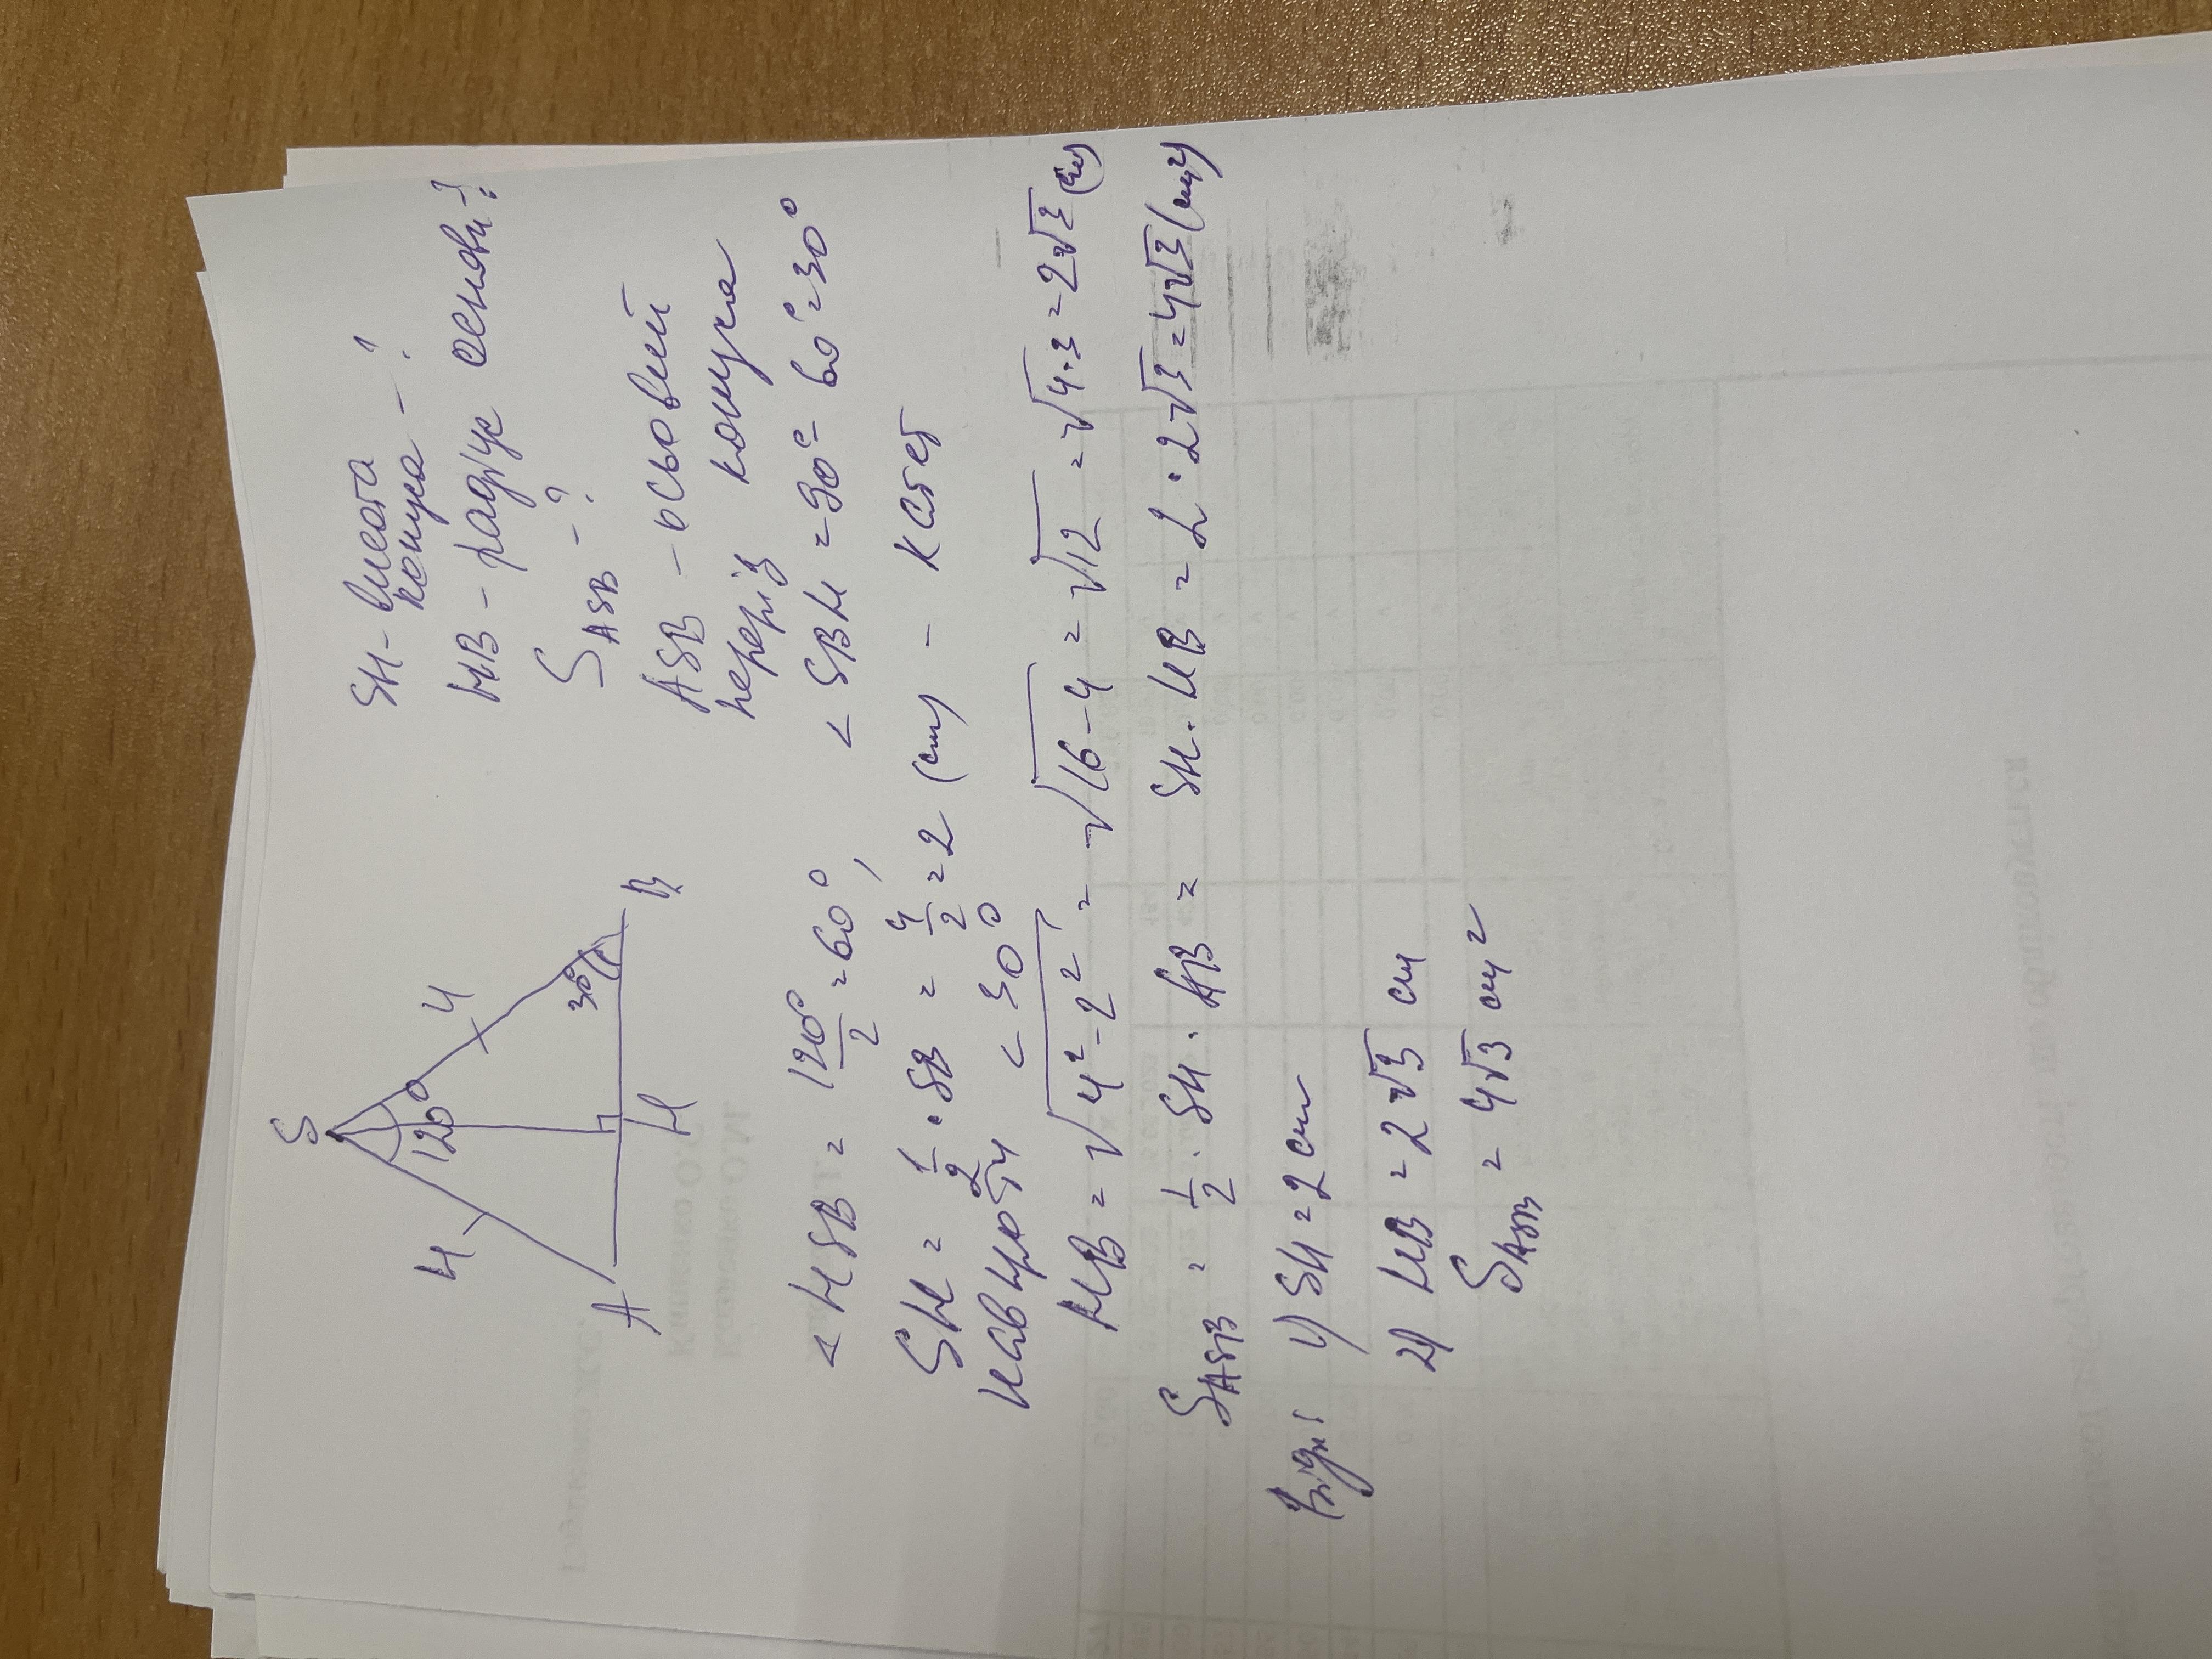 S
4
4
120°
30°
A
H
B
SH - висота
конуса - ?
HB - радіус основи - ?
S ASB - ?
ASB - осьовий
переріз конуса
< HSB = 120°/2 = 60°, < SBH = 90° - 60° = 30°
SH = 1/2 · SB = 4/2 = 2 (см) - катет
навпроти < 30°
HB = √4² - 2² = √16 - 4 = √12 = √4·3 = 2√3 (см)
S ASB = 1/2 · SH · AB = SH · HB = 2 · 2√3 = 4√3 (см²)
Відп: 1) SH = 2 см
2) HB = 2√3 см
S ASB = 4√3 см²